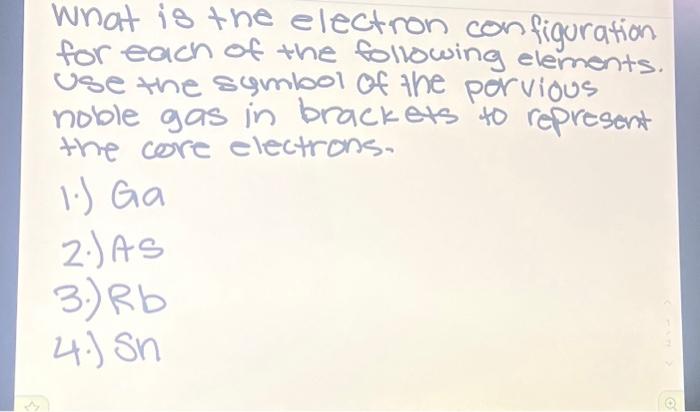 What is the electron configuration
for each of the following elements.
Use the symbol of the porvious
noble gas in brackets to represent
the core electrons.
1.) Ga
2.) As
3.) Rb
4.) Sn